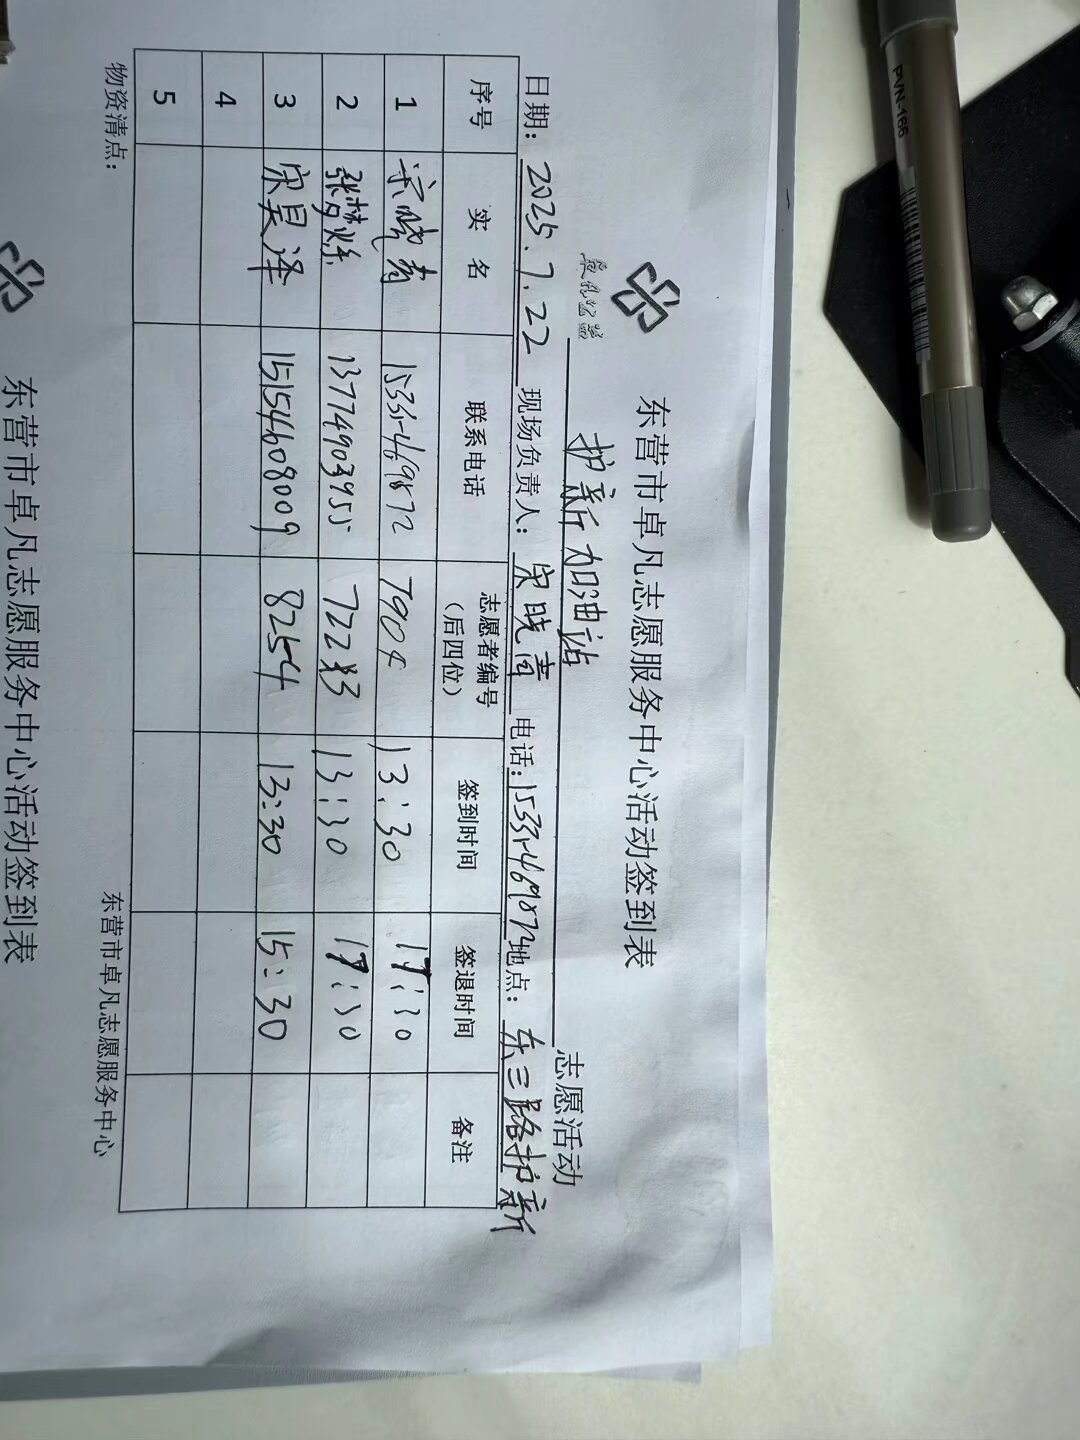 东营市卓凡志愿服务中心活动签到表
卓凡公益
护新加油站 志愿活动
日期：2025.7.22 现场负责人：宋晓青 电话：15335469872 地点：东三路护新
序号 实名 联系电话 志愿者编号（后四位） 签到时间 签退时间 备注
1 宋晓青 15335469872 7904 13:30 17:30
2 13774903955 13:30 17:30
3 宋昊泽 15154608009 8254 13:30 15:30
4
5
物资清点： 东营市卓凡志愿服务中心
东营市卓凡志愿服务中心活动签到表
PVN-166